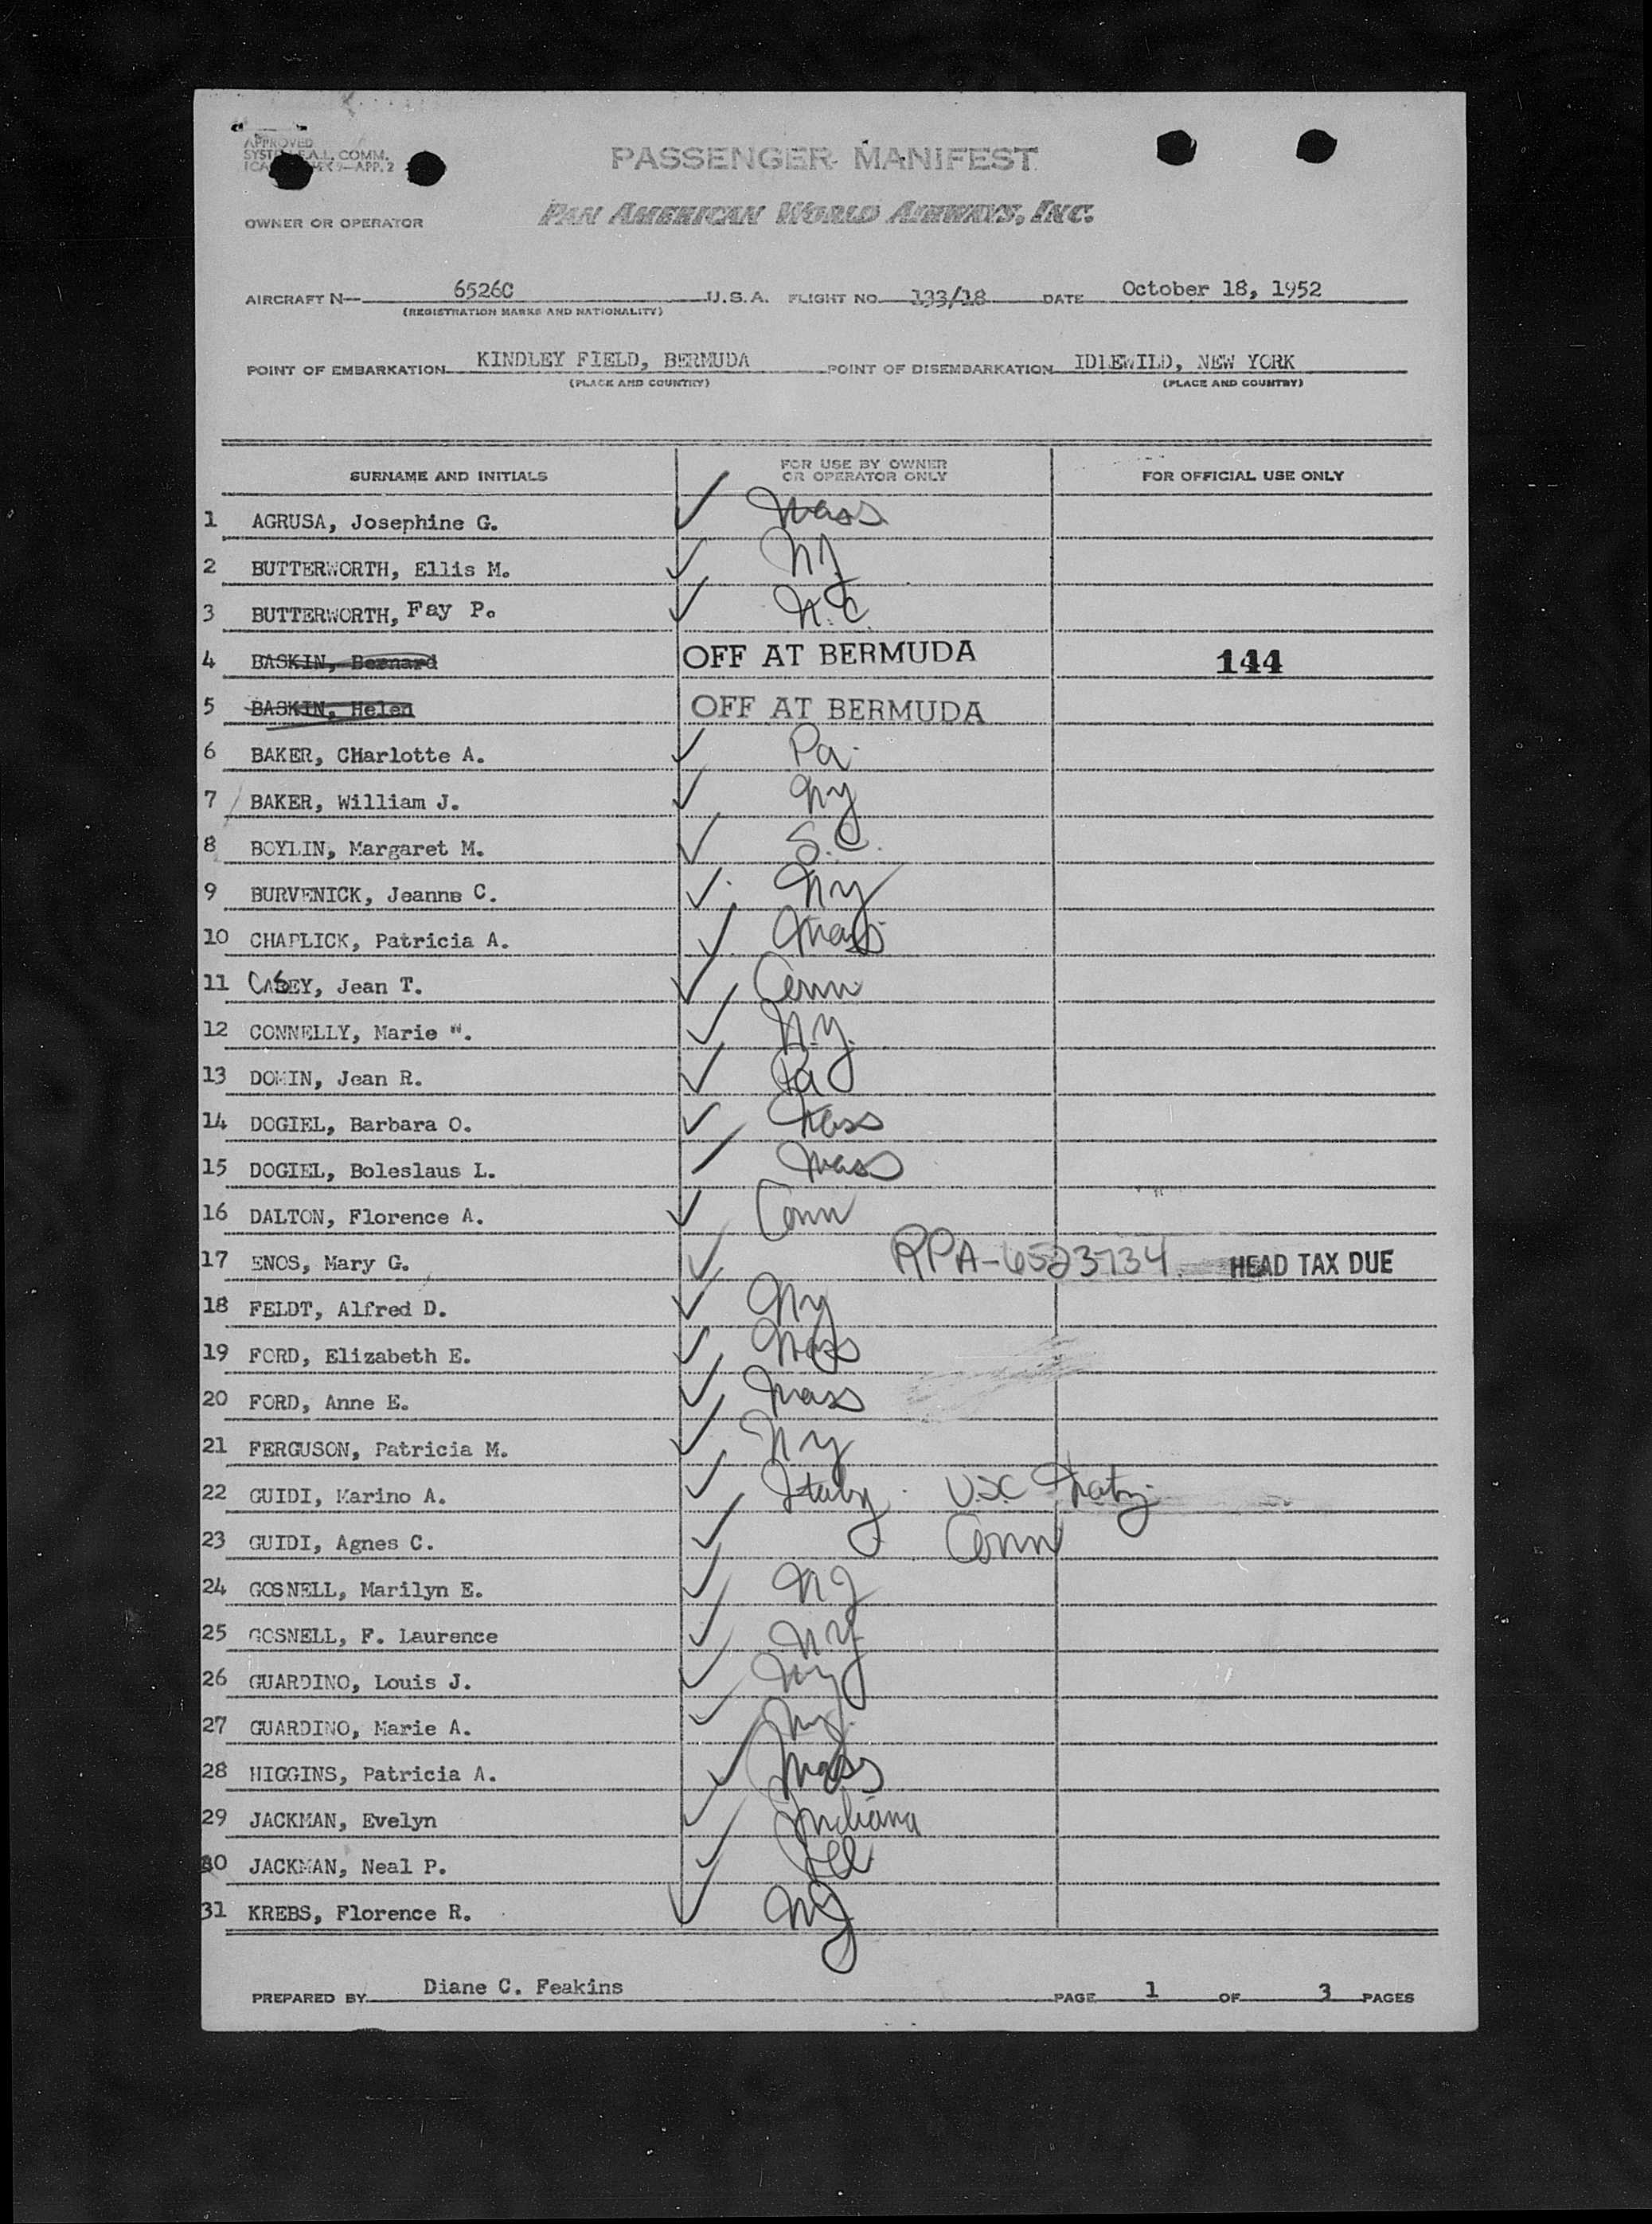 APPROVED
COMM.
PASSENGER MANIFEST
PAN AMERICAN WORLD AIRWAYS, INC.
OWNER OR OPERATOR
AIRCRAFT N— 6526C U.S.A. FLIGHT NO. 133/18 DATE October 18, 1952
(REGISTRATION MARKS AND NATIONALITY)
POINT OF EMBARKATION KINDLEY FIELD, BERMUDA POINT OF DISEMBARKATION IDLEWILD, NEW YORK
(PLACE AND COUNTRY) (PLACE AND COUNTRY)
SURNAME AND INITIALS FOR USE BY OWNER OR OPERATOR ONLY FOR OFFICIAL USE ONLY
1 AGRUSA, Josephine G. ✓ Mass
2 BUTTERWORTH, Ellis M. ✓ NJ
3 BUTTERWORTH, Fay P. ✓ N.C.
4 BASKIN, Bernard OFF AT BERMUDA 144
5 BASKIN, Helen OFF AT BERMUDA
6 BAKER, CHarlotte A. ✓ Pa.
7 BAKER, William J. ✓ NY
8 BOYLIN, Margaret M. ✓ S.C.
9 BURVENICK, Jeanne C. ✓ NY
10 CHAPLICK, Patricia A. ✓ Mass
11 CASEY, Jean T. ✓ Conn
12 CONNELLY, Marie ". ✓ N.Y.
13 DOMIN, Jean R. ✓ Pa
14 DOGIEL, Barbara O. ✓ Mass
15 DOGIEL, Boleslaus L. ✓ Mass
16 DALTON, Florence A. ✓ Conn
17 ENOS, Mary G. ✓ RPA-6523734 HEAD TAX DUE
18 FELDT, Alfred D. ✓ NY
19 FORD, Elizabeth E. ✓ Mass
20 FORD, Anne E. ✓ Mass
21 FERGUSON, Patricia M. ✓ NY
22 GUIDI, Marino A. ✓ Italy USC
23 GUIDI, Agnes C. ✓ Conn
24 GOSNELL, Marilyn E. ✓ NJ
25 GOSNELL, F. Laurence ✓ NY
26 GUARDINO, Louis J. ✓ NY
27 GUARDINO, Marie A. ✓
28 HIGGINS, Patricia A. ✓ Mass
29 JACKMAN, Evelyn ✓ Indiana
30 JACKMAN, Neal P. ✓ Ill
31 KREBS, Florence R. ✓ NJ
PREPARED BY Diane C. Feakins PAGE 1 OF 3 PAGES